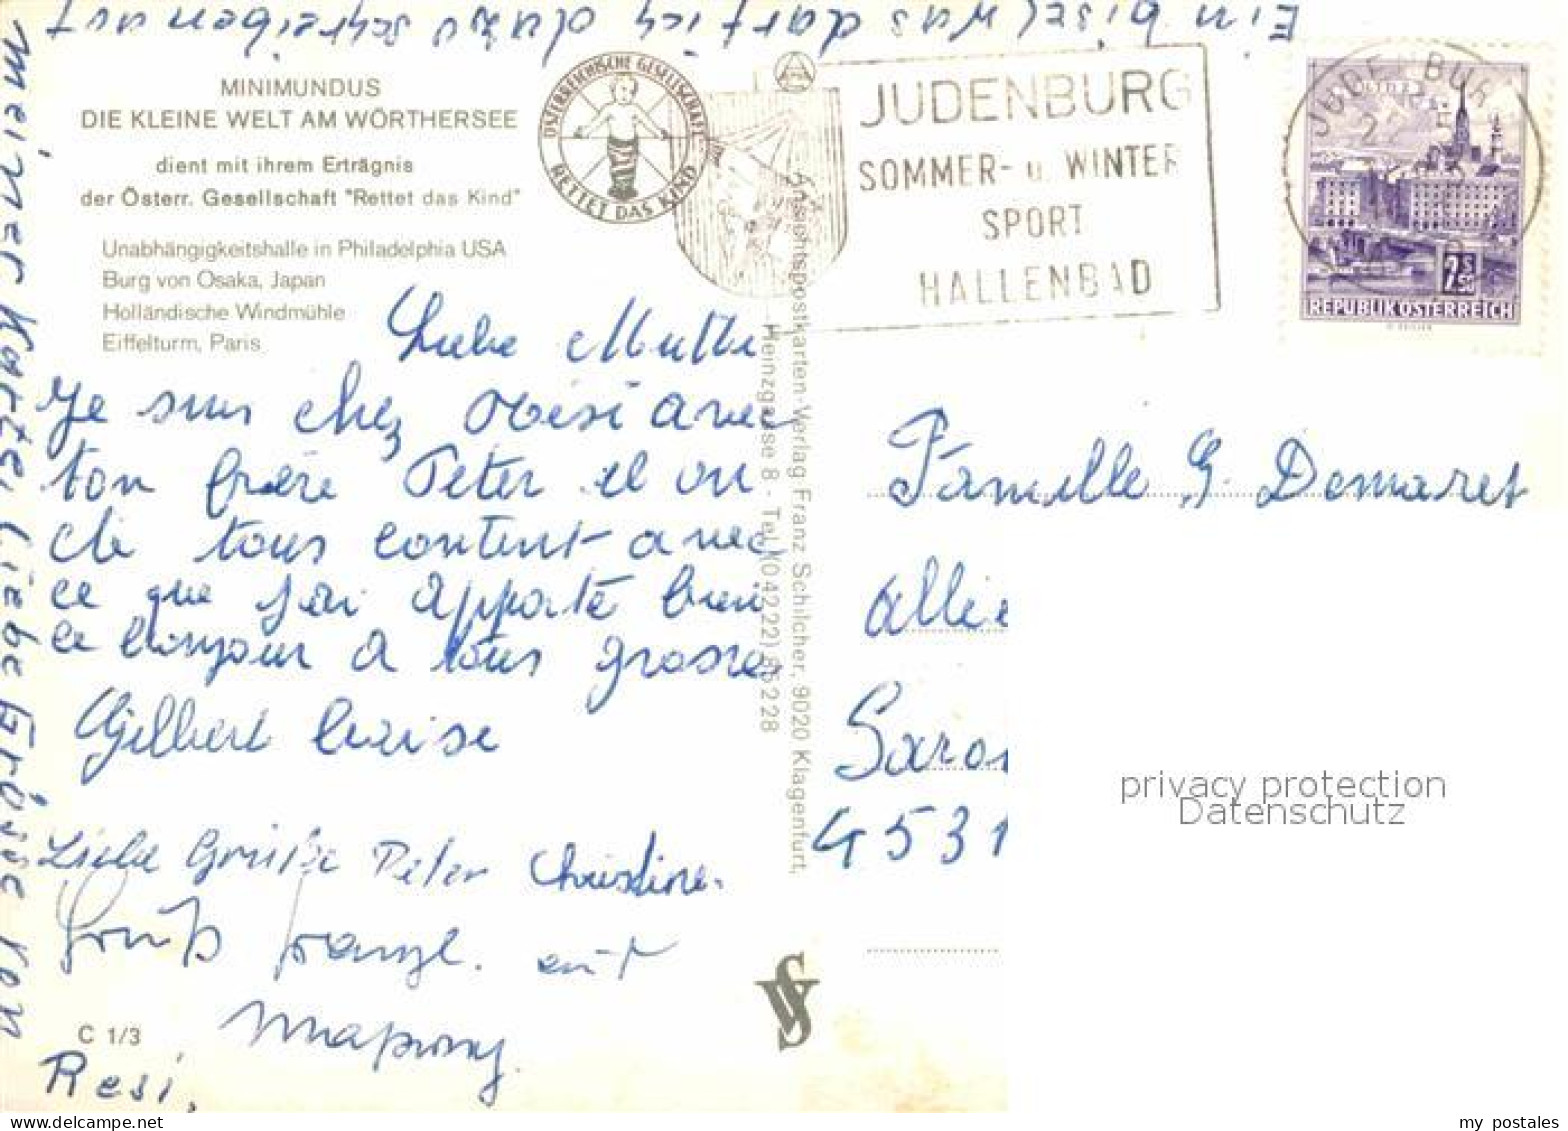 Ein bisel was darf ich dazu schreiben auf
meiner Karte Liebe Grüsse von
Resi,
MINIMUNDUS
DIE KLEINE WELT AM WÖRTHERSEE
dient mit ihrem Erträgnis
der Österr. Gesellschaft "Rettet das Kind"
Unabhängigkeitshalle in Philadelphia USA
Burg von Osaka, Japan
Holländische Windmühle
Eiffelturm, Paris
ÖSTERREICHISCHE GESELLSCHAFT
RETTET DAS KIND
JUDENBURG
SOMMER- u. WINTER
SPORT
HALLENBAD
JUDENBURG
2,50
REPUBLIK ÖSTERREICH
Liebe Mutti
Je suis chez avec
ton frère Peter et on
cle tous content avec
ce que j'ai apporté bien
le bonjour a tous grosses
Gilbert Louise
Liebe Grüße Peter Christine.
Gruß Franzl.
C 1/3
Ansichtspostkarten-Verlag Franz Schilcher, 9020 Klagenfurt,
Heinzgasse 8 - Tel. (04222) 85228
Famille G. Demaret
allée
Saro
4531
privacy protection
Datenschutz
my postales